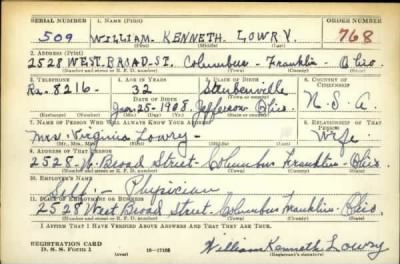 SERIAL NUMBER 1. NAME (Print) ORDER NUMBER
509 WILLIAM. KENNETH. LOWRY. 768
2. ADDRESS (Print)
2528 WEST. BROAD. ST. Columbus - Franklin - Ohio.
(Number and street or R. F. D. number) (Town) (County) (State)
3. TELEPHONE 4. AGE IN YEARS 5. PLACE OF BIRTH 6. COUNTRY OF CITIZENSHIP
Ra. 8216 - 32 Steubenville
DATE OF BIRTH
Jan. 25 - 1908. Jefferson Ohio. U. S. A.
(Exchange) (Number) (Mo.) (Day) (Yr.) (State or country)
7. NAME OF PERSON WHO WILL ALWAYS KNOW YOUR ADDRESS 8. RELATIONSHIP OF THAT PERSON
Mrs. Virginia Lowry - Wife.
(Mr., Mrs., Miss)
9. ADDRESS OF THAT PERSON
2528. W. Broad Street - Columbus Franklin - Ohio
(Number and street or R. F. D. number) (Town) (County) (State)
10. EMPLOYER'S NAME
Self. - Physician
11. PLACE OF EMPLOYMENT OR BUSINESS
2528 West Broad Street - Columbus Franklin - Ohio.
(Number and street or R. F. D. number) (Town) (County) (State)
I AFFIRM THAT I HAVE VERIFIED ABOVE ANSWERS AND THAT THEY ARE TRUE.
REGISTRATION CARD
D. S. S. Form 1 (over) William Kenneth Lowry